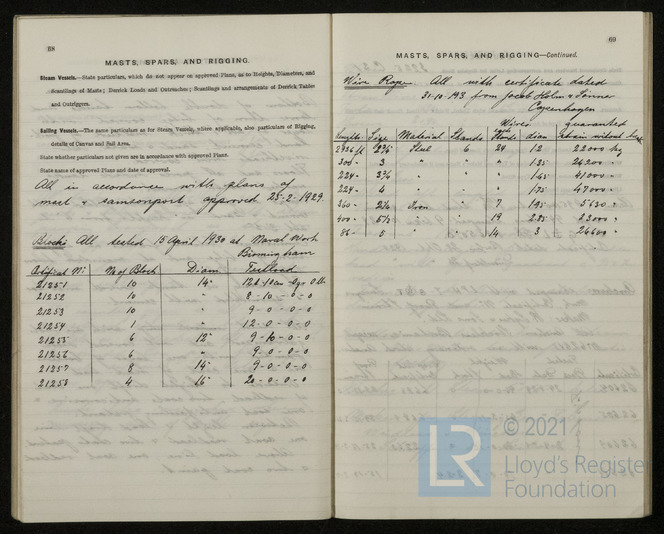 68
MASTS, SPARS, AND RIGGING.
Steam Vessels.—State particulars, which do not appear on approved Plans, as to Heights, Diameters, and
Scantlings of Masts; Derrick Loads and Outreaches; Scantlings and arrangements of Derrick Tables
and Outriggers.
Sailing Vessels.—The same particulars as for Steam Vessels, where applicable, also particulars of Rigging,
details of Canvas and Sail Area.
State whether particulars not given are in accordance with approved Plans.
State name of approved Plans and date of approval.
All in accordance with plans of
mast & samsonport approved 25-2-1929.
Blocks All tested 15 April 1930 at Naval Work
Birmingham
Certificat No No of Block Diam Testload
21251 10 14"
21252 10 " 8-10-0-0
21253 10 " 9-0-0-0
21254 1 " 12-0-0-0
21255 6 12" 9-10-0-0
21256 6 " 9-0-0-0
21257 8 14" 9-0-0-0
21258 4 16" 20-0-0-0
69
MASTS, SPARS, AND RIGGING—Continued.
Wire Rope All with certificate dated
31-10-193 from Jacob Holm & Sønner
Copenhagen
Wires guaranteed
Lengths Size Material Strands each Strand diam strain without break
6 24 12 22000 kg
300 - 3 " " " 135 26200 "
224 - 3 3/4 " " " 1.45 41000 "
224 - 4 " " " 1.75 47000 "
360 - 2 1/4 Iron " 7 195 5630 "
400 - 5 1/2 " " 19 2.25 23000 "
86 - 5 " " 14 3 26600 "
© 2021
LR
Lloyd's Register
Foundation